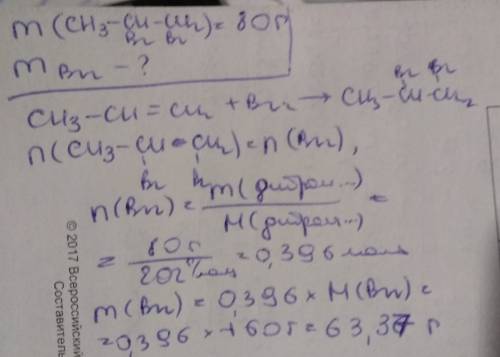 m(CH3-CH-CH2)=80г
Br Br
mBr2-?
CH3-CH=CH2+Br2→CH3-CH-CH2
Br Br
n(CH3-CH-CH2)=n(Br2),
Br Br
n(Br2)=m(дибром...)/M(дибром...)=
=80г/202г/моль=0,396 моль
m(Br2)=0,396×M(Br2)=
=0,396×160г=63,37 г
© 2017 Всероссийский
Составитель